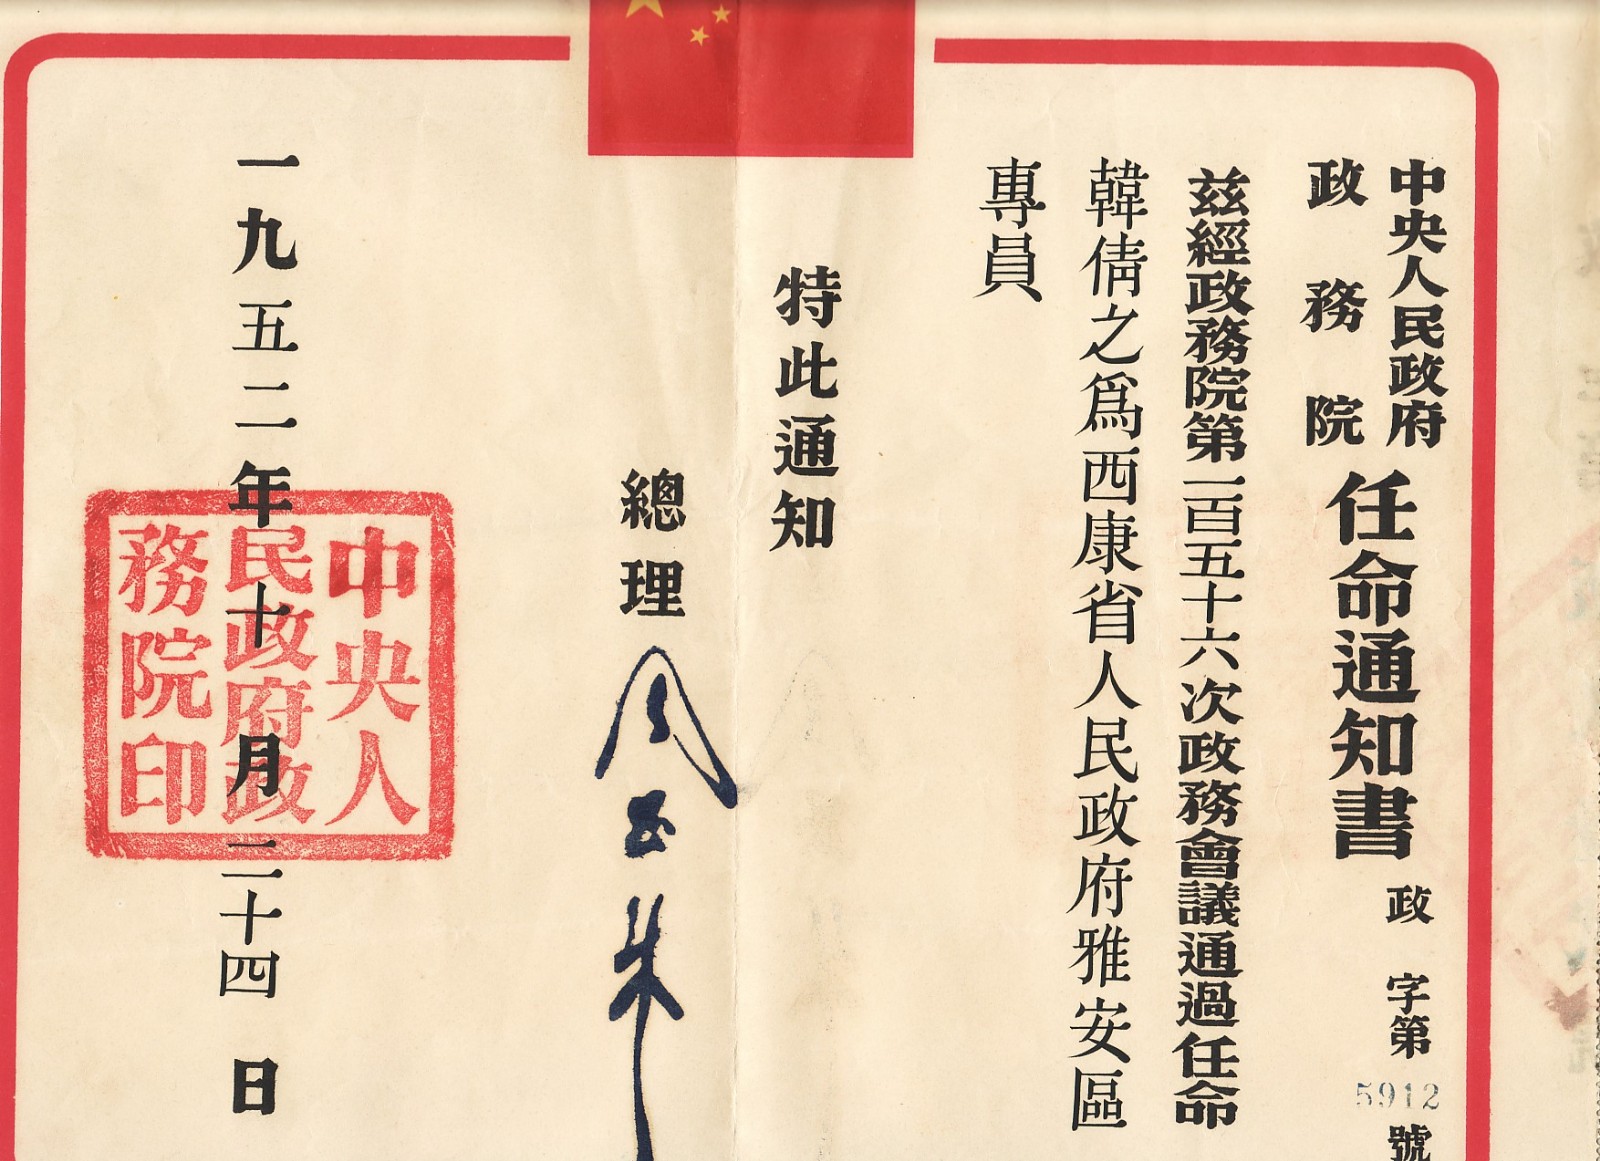 中央人民政府
政務院
任命通知書
政字第5912號
茲經政務院第一百五十六次政務會議通過任命
韓倩之爲西康省人民政府雅安區
專員
特此通知
總理 周恩來
一九五二年十月二十四日
中央人
民政府政
務院印